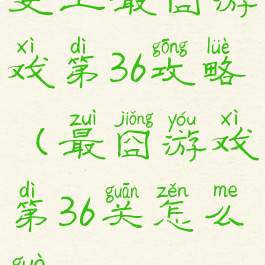 最囧游
xì dì gōng lüè
戏第36攻略
zuì jiǒng yóu xì
（最囧游戏
dì guān zěn me
第36关怎么
guò